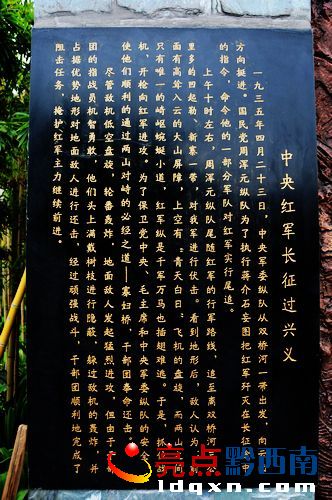 中央红军长征过兴义
一九三五年四月二十三日，中央军委纵队从双桥河一带出发，向云
方向挺进。国民党周浑元纵队为了执行蒋介石妄图把红军歼灭在长征途中
的指令，命令他的一部分军队对红军实行尾追。
上午十时左右，周浑元纵队尾随红军的行军路线，追至离双桥河
里多的四起勒、新寨一带，对我军进行伏击。看到地形后，敌人认为，前
面有高耸入云的大山屏障，上空有"青天白日"飞机的盘旋，而两山间
只有唯一的崎岖蜿蜒小道，红军纵是千军万马也插翅难逃。于是，抓住战
机，开枪向红军进攻。为了保卫党中央、毛主席和中央军委纵队的安全
使他们顺利的通过两山对峙的必经之道——寡妇桥，干部团奉命还击。
尽管敌机低空盘旋，轮番轰炸，地面敌人发起猛烈进攻，但由于干部
团的指战员机智勇敢，他们头上满戴树枝进行隐蔽，躲过敌机的轰炸，并
占据优势地形对地面敌人进行还击，经过顽强战斗，干部团顺利地完成了
阻击任务，掩护红军主力继续前进。
亮点黔西南
ldqxn.com